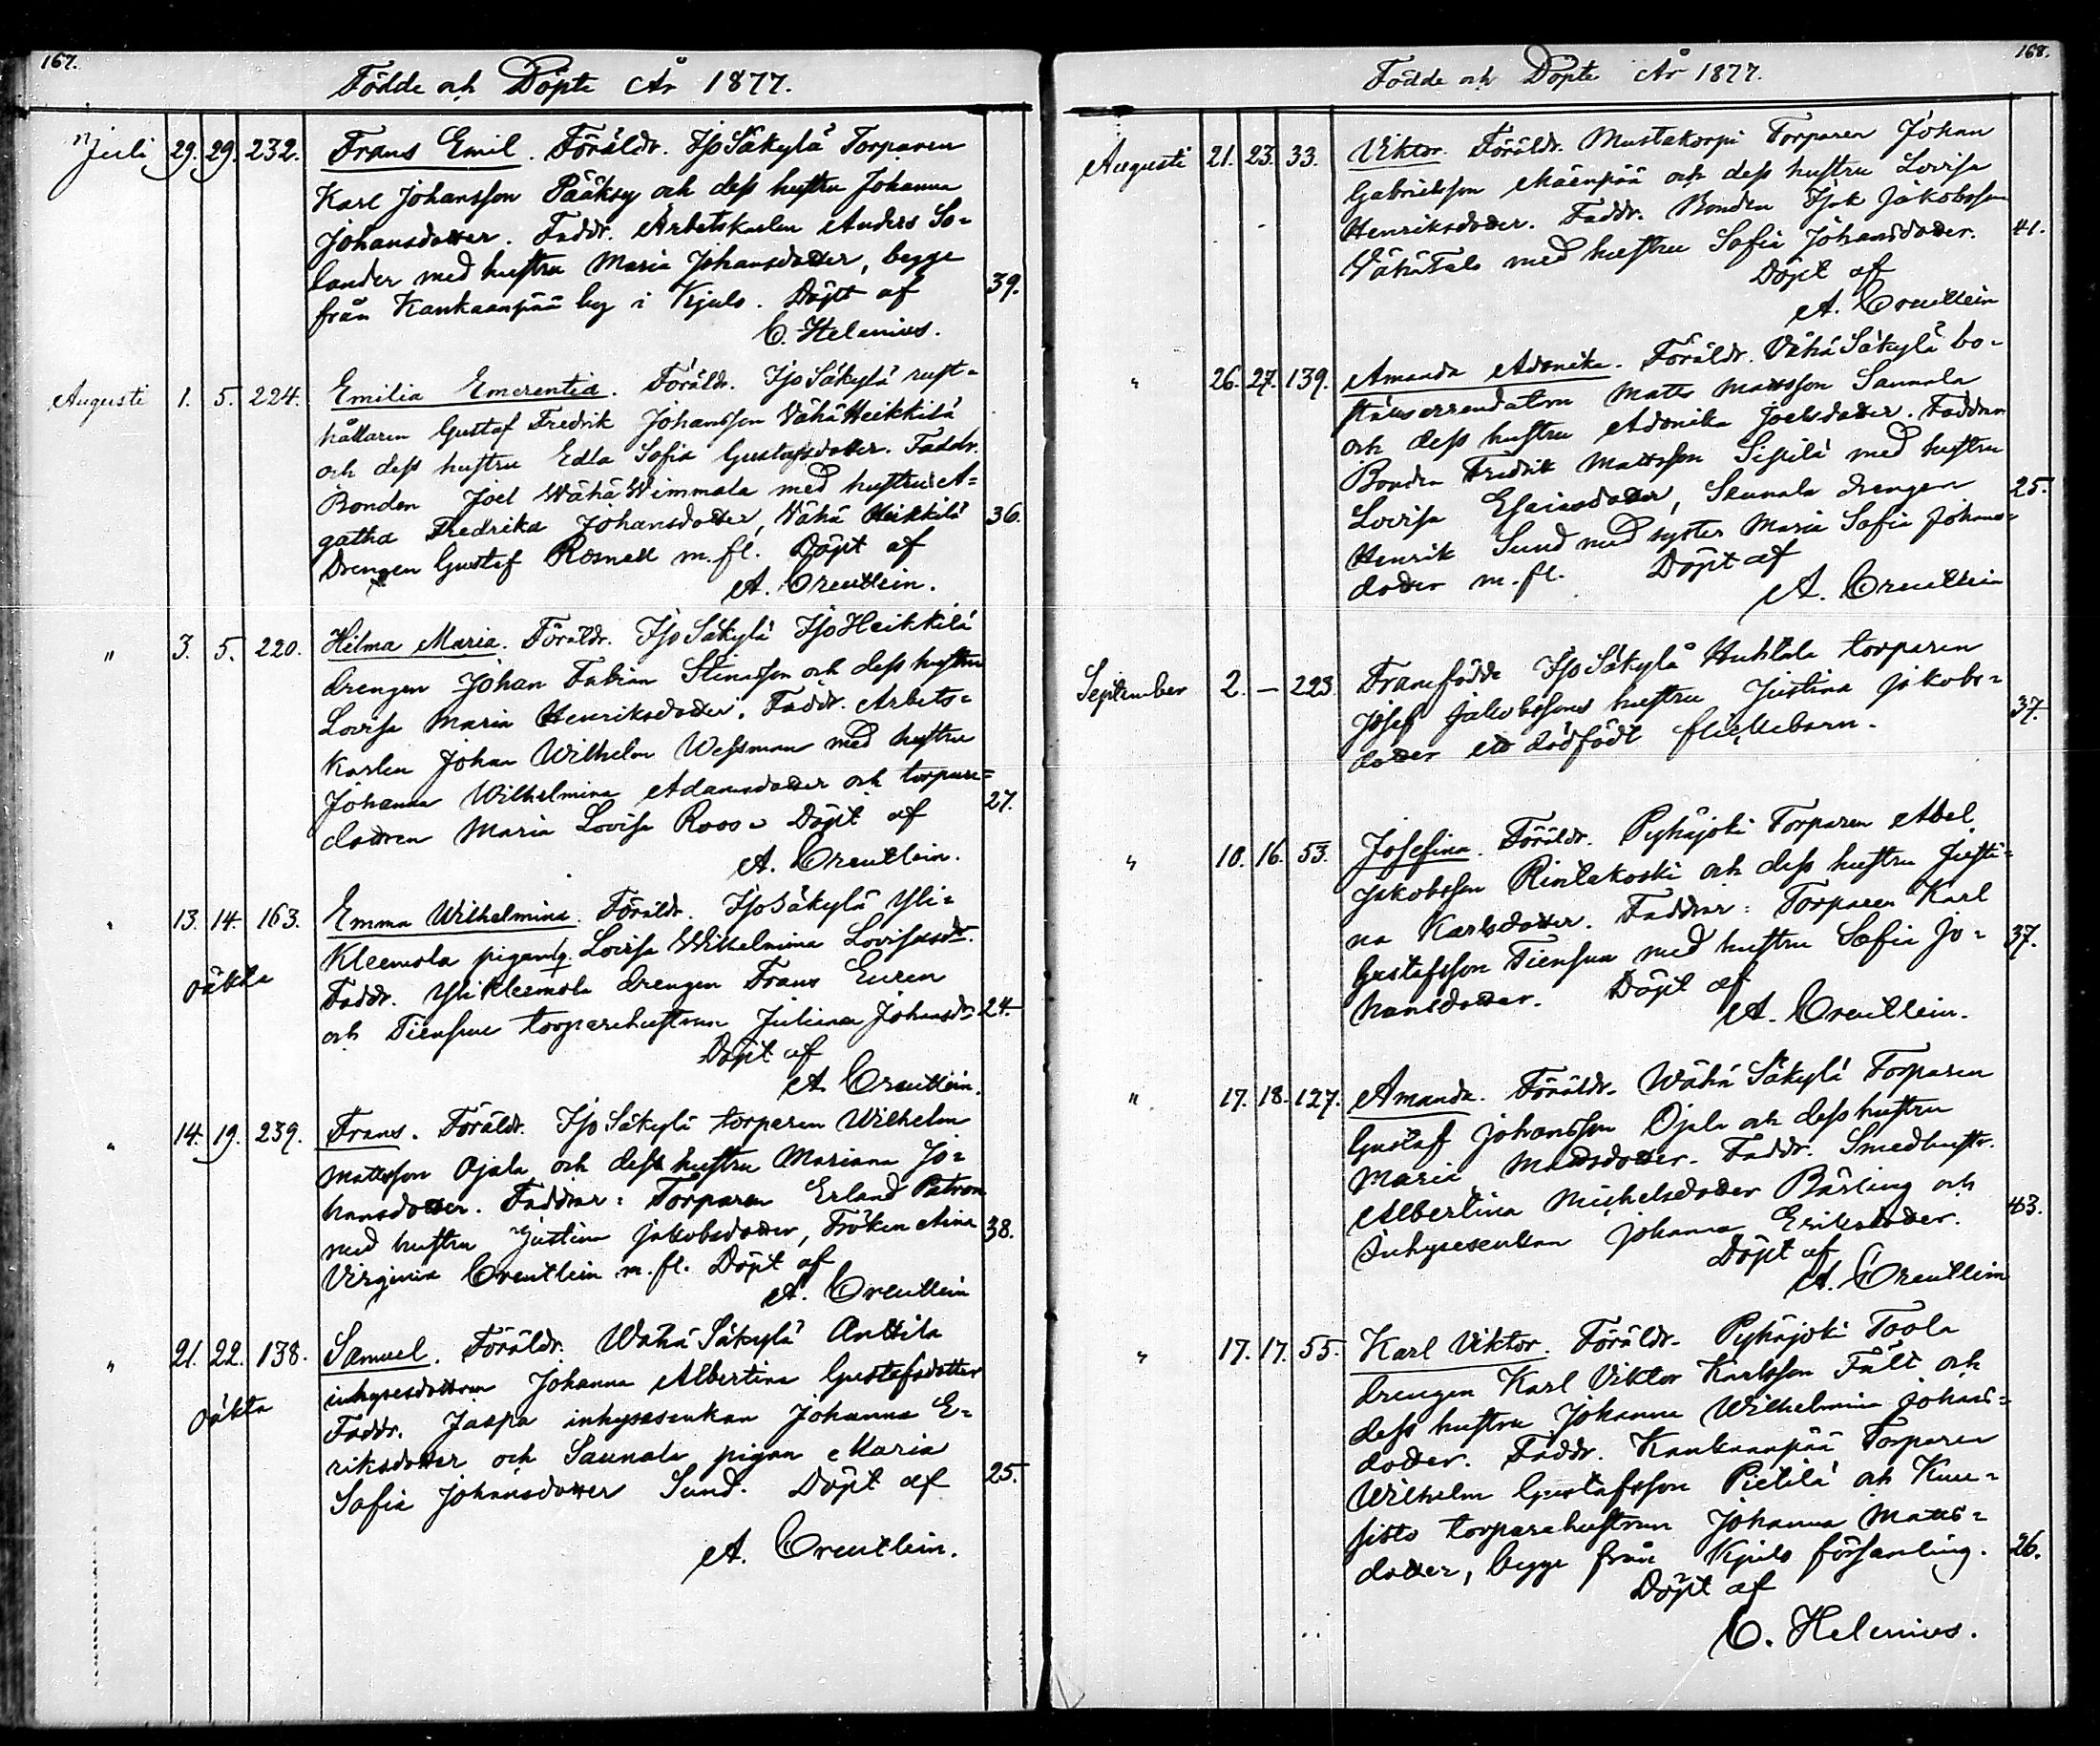 167.
Födde och Döpte År 1877.
Juli 29. 29. 232. Frans Emil. Föräldr. Iso Säkylä Torparen
Karl Johansson Pääksy och dess hustru Johanna
Johansdotter. Faddr. Arbetskarlen Anders So-
lander med hustru Maria Johansdotter, begge
från Kankaanpää by i Kjulo. Döpt af 39.
C. Helenius.
Augusti 1. 5. 224. Emilia Emerentia. Föräldr. Iso Säkylä rust-
hållaren Gustaf Fredrik Johansson Vähä Heikkilä
och dess hustru Edla Sofia Gustafsdotter. Faddr.
Bonden Joel Wähä Wimmala med hustru A-
gatha Fredrika Johansdotter, Vähä Heikkilä 36.
Drengen Gustaf Rosnell m. fl. Döpt af
A. Creutlein.
" 3. 5. 220. Hilma Maria. Föräldr. Iso Säkylä Iso Heikkilä
drengen Johan Fabian Stinasson och dess hustru
Lovisa Maria Henriksdotter. Faddr. Arbets-
karlen Johan Wilhelm Wessman med hustru
Johanna Wilhelmina Adamsdotter och torpare-
dottren Maria Lovisa Roos. Döpt af 27.
A. Creutlein.
" 13. 14. 163. Emma Wilhelmina. Föräldr. Iso Säkylä Yli-
Kleemola pigan Lovisa Wilhelmina Lovisasdr.
oäkta Faddr. Yli Kleemola drengen Frans Euren
och Tiensuu torparehustrun Juliana Johansdr 24.
Döpt af
A. Creutlein.
" 14. 19. 239. Frans. Föräldr. Iso Säkylä torparen Wilhelm
Mattsson Ojala och dess hustru Mariana Jo-
hansdotter. Faddrar: Torparen Erland Patron
med hustru Justina Jakobsdotter, Fröken Aina 38.
Virginia Creutlein m. fl. Döpt af
A. Creutlein
" 21. 22. 138. Samuel. Föräldr. Wähä Säkylä Anttila
inhysesdottren Johanna Albertina Gustafsdotter
oäkta Faddr. Jaspa inhysesenkan Johanna E-
riksdotter och Saunala pigan Maria
Sofia Johansdotter Sund. Döpt af 25.
A. Creutlein.
168.
Födde och Döpte År 1877.
Augusti 21. 23. 33. Viktor. Föräldr. Mustakorpi Torparen Johan
Gabrielsson Mäenpää och dess hustru Lovisa
Henriksdotter. Faddr. Bonden Isak Jakobsson
VähäTalo med hustru Sofia Johansdotter. 41.
Döpt af
A. Creutlein
" 26. 27. 139. Amanda Adonika. Föräldr. Vähä Säkylä bo-
ställsarrendatorn Matts Mattsson Saunala
och dess hustru Adonika Joelsdotter. Faddrar
Bonden Fredrik Mattsson Sipilä med hustru
Lovisa Esaiasdotter, Saunala drengen 25.
Henrik Sund med syster Maria Sofia Johans-
dotter m. fl. Döpt af
A. Creutlein
September 2. — 223. Framfödde Iso Säkylä Huhtala torparen
Josef Jakobssons hustru Justina Jakobs-
dotter ett dödfödt flickebarn. 37.
" 10. 16. 53. Josefina. Föräldr. Pyhäjoki Torparen Abel
Jakobsson Rintakoski och dess hustru Justi-
na Karlsdotter. Faddrar: Torparen Karl
Gustafsson Tiensuu med hustru Sofia Jo- 37.
hansdotter. Döpt af
A. Creutlein.
" 17. 18. 127. Amanda. Föräldr. Wähä Säkylä Torparen
Gustaf Johansson Ojala och dess hustru
Maria Mattsdotter. Faddr. Smedhustr.
Albertina Michelsdotter Bärling och
Inhysesenkan Johanna Eriksdotter. 43.
Döpt af
A. Creutlein
" 17. 17. 55. Karl Viktor. Föräldr. Pyhäjoki Toola
drengen Karl Viktor Karlsson Fält och
dess hustru Johanna Wilhelmina Johans-
dotter. Faddr. Kankaanpää Torparen
Wilhelm Gustafsson Pietilä och Kuu-
sisto torparehustrun Johanna Matts-
dotter, begge från Kjulo församling. 26.
Döpt af
C. Helenius.